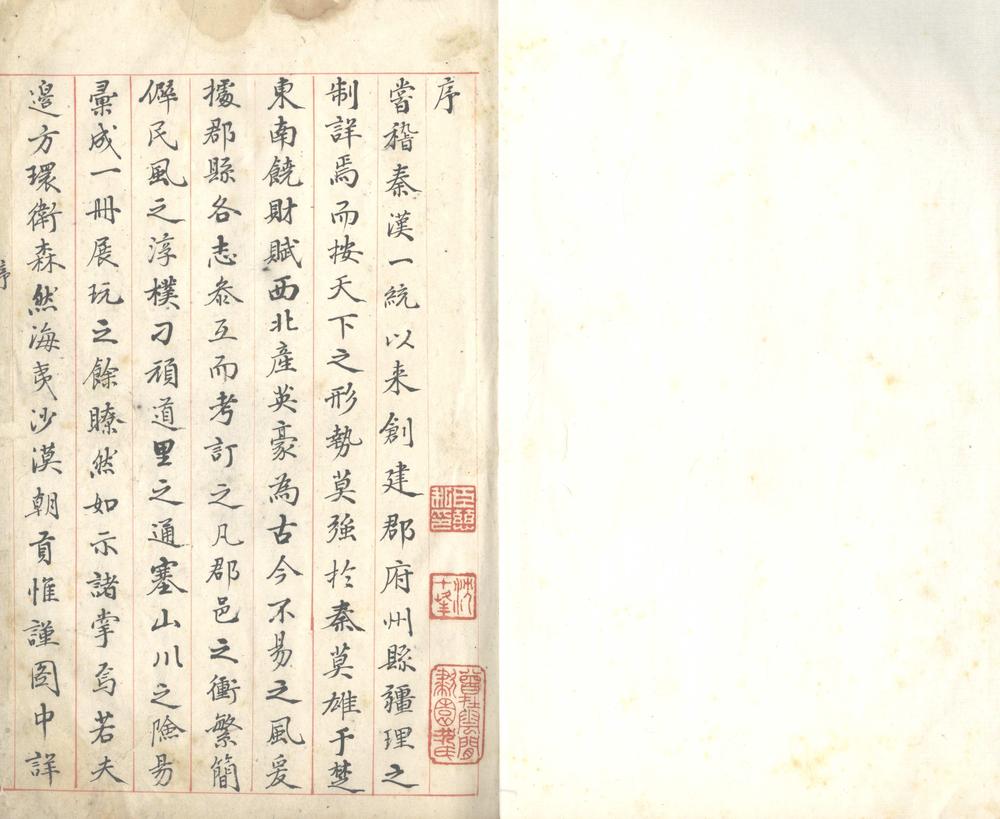 序
嘗稽秦漢一統以来創建郡府州縣疆理之
制詳焉而按天下之形勢莫強於秦莫雄于楚
東南饒財賦西北產英豪為古今不易之風爰
據郡縣各志叅互而考訂之凡郡邑之衝繁簡
僻民風之淳樸刁頑道里之通塞山川之險易
彚成一冊展玩之餘瞭然如示諸掌焉若夫
邉方環衛森然海夷沙漠朝貢惟謹圖中詳
序